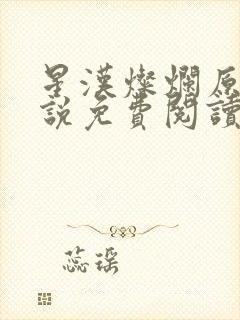 星漢燦爛原
說免費閱讀
蕊瑤